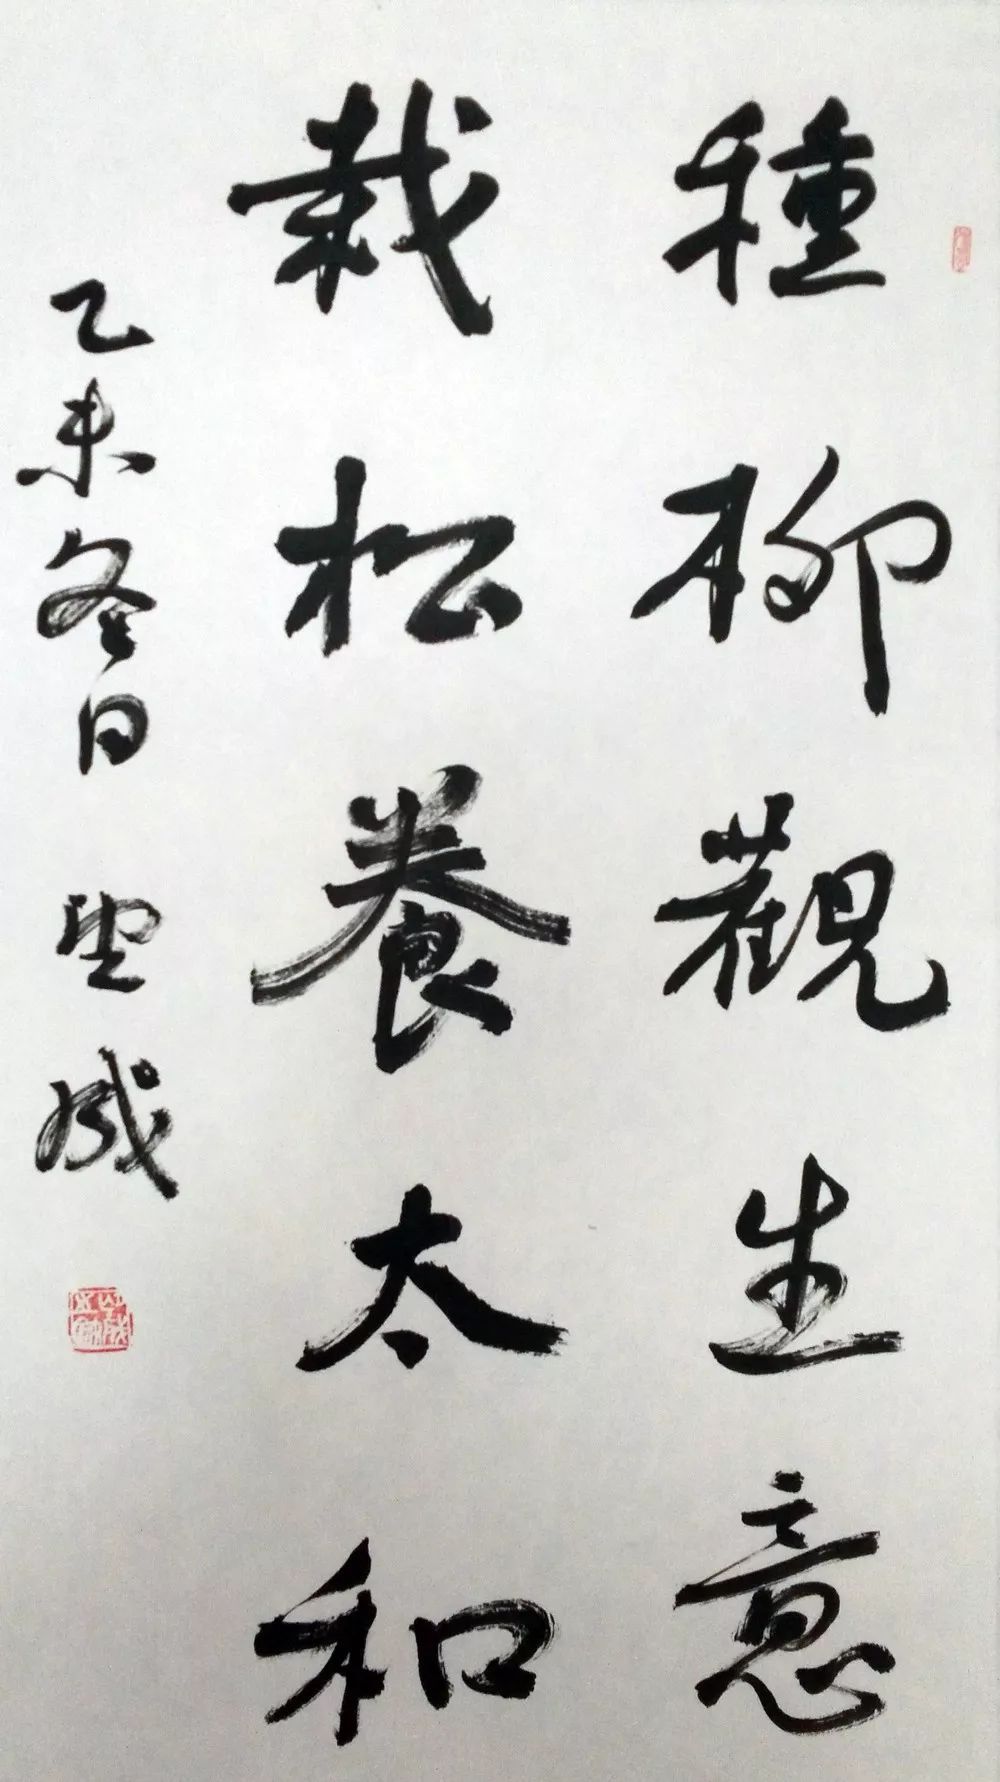 種柳觀生意
栽松養太和
乙未冬日 聖成